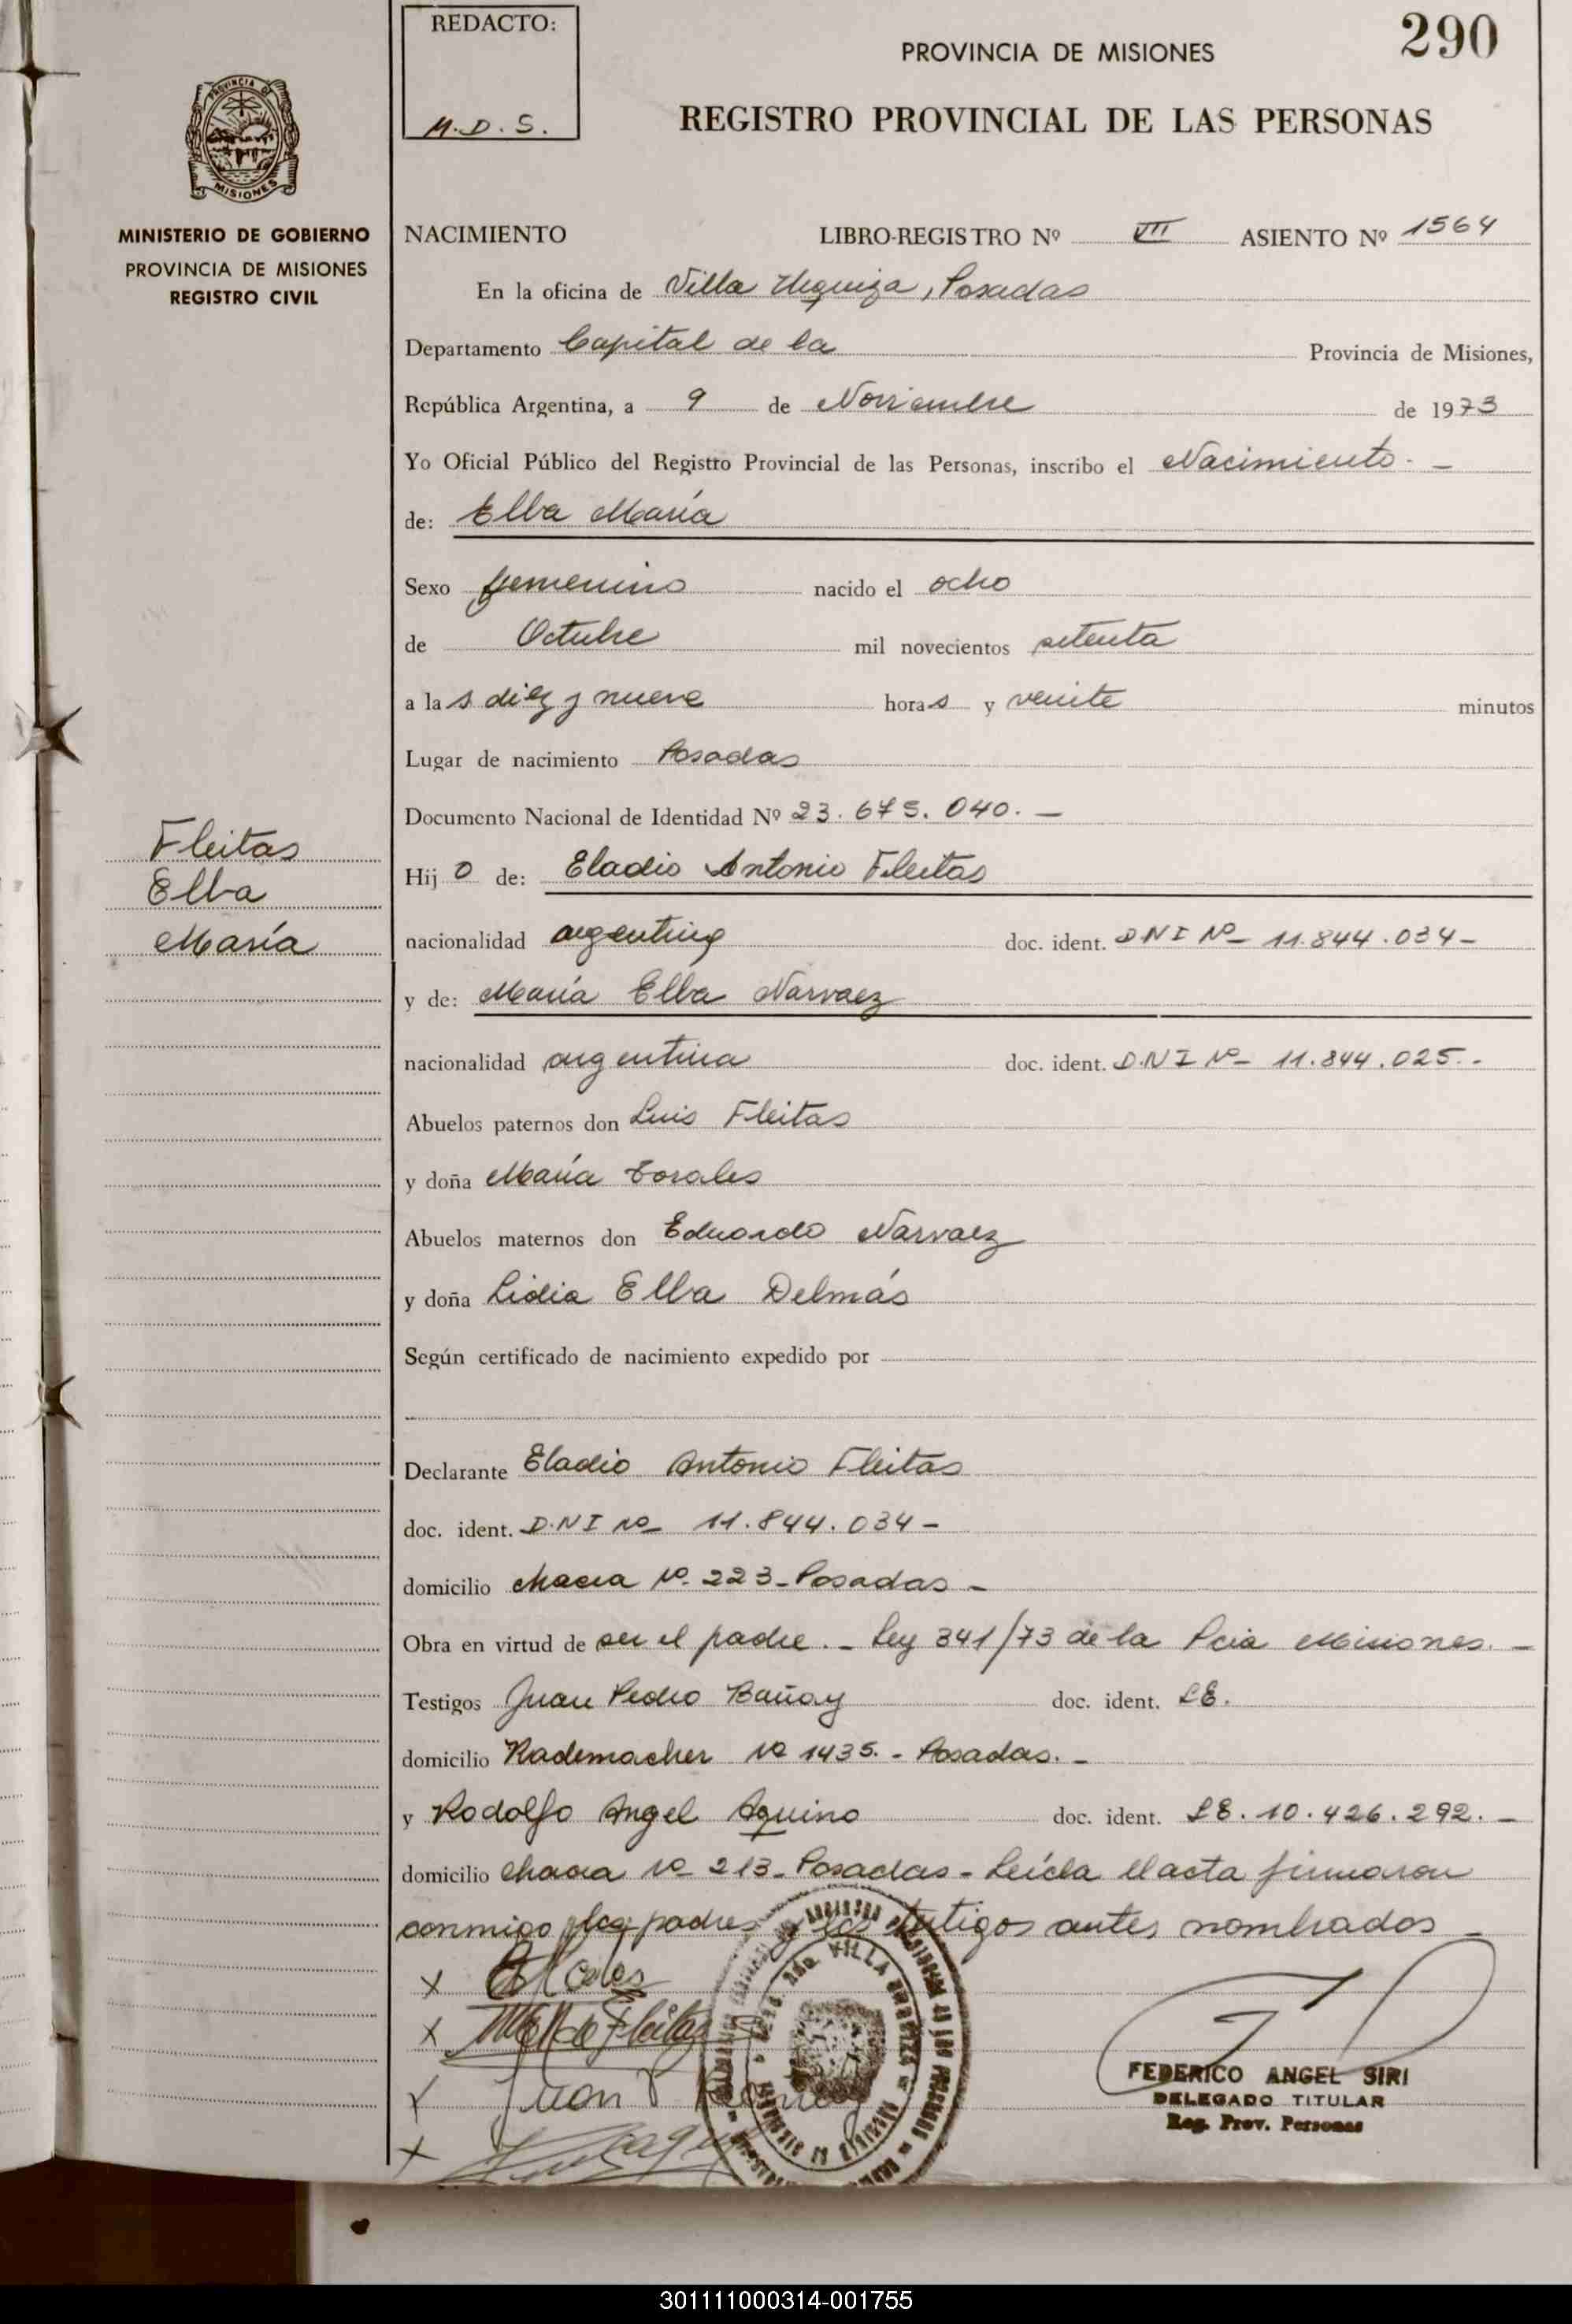 REDACTO:
M.D.S.
290
PROVINCIA DE MISIONES
REGISTRO PROVINCIAL DE LAS PERSONAS
PROVINCIA DE
MISIONES
MINISTERIO DE GOBIERNO
PROVINCIA DE MISIONES
REGISTRO CIVIL
NACIMIENTO LIBRO-REGISTRO Nº VII ASIENTO Nº 1564
En la oficina de Villa Urquiza, Posadas
Departamento Capital de la Provincia de Misiones,
República Argentina, a 9 de Noviembre de 1973
Yo Oficial Público del Registro Provincial de las Personas, inscribo el Nacimiento. -
de: Elba María
Sexo femenino nacido el ocho
de Octubre mil novecientos setenta
a las diez y nueve horas y veinte minutos
Lugar de nacimiento Posadas
Documento Nacional de Identidad Nº 23.675.040. -
Fleitas
Elba
María
Hijo de: Eladio Antonio Fleitas
nacionalidad argentina doc. ident. DNI Nº 11.844.034-
y de: María Elba Narvaez
nacionalidad argentina doc. ident. D.N.I Nº 11.844.025.-
Abuelos paternos don Luis Fleitas
y doña María
Abuelos maternos don Eduardo Narvaez
y doña Lidia Elba Delmás
Según certificado de nacimiento expedido por
Declarante Eladio Antonio Fleitas
doc. ident. D.N.I Nº 11.844.034-
domicilio chacra Nº 223-Posadas-
Obra en virtud de ser el padre. - Ley 341/73 de la Pcia Misiones. -
Testigos Juan Pedro doc. ident. LE.
domicilio Rademacher Nº 1435. - Posadas. -
y Rodolfo Angel Aquino doc. ident. LE. 10.426.292. -
domicilio chacra Nº 213-Posadas-Leída el acta firmaron
conmigo padres y los testigos antes nombrados
x
x Fleitas
x Juan P
x
VILLA URQUIZA
FEDERICO ANGEL SIRI
DELEGADO TITULAR
Reg. Prov. Personas
301111000314-001755